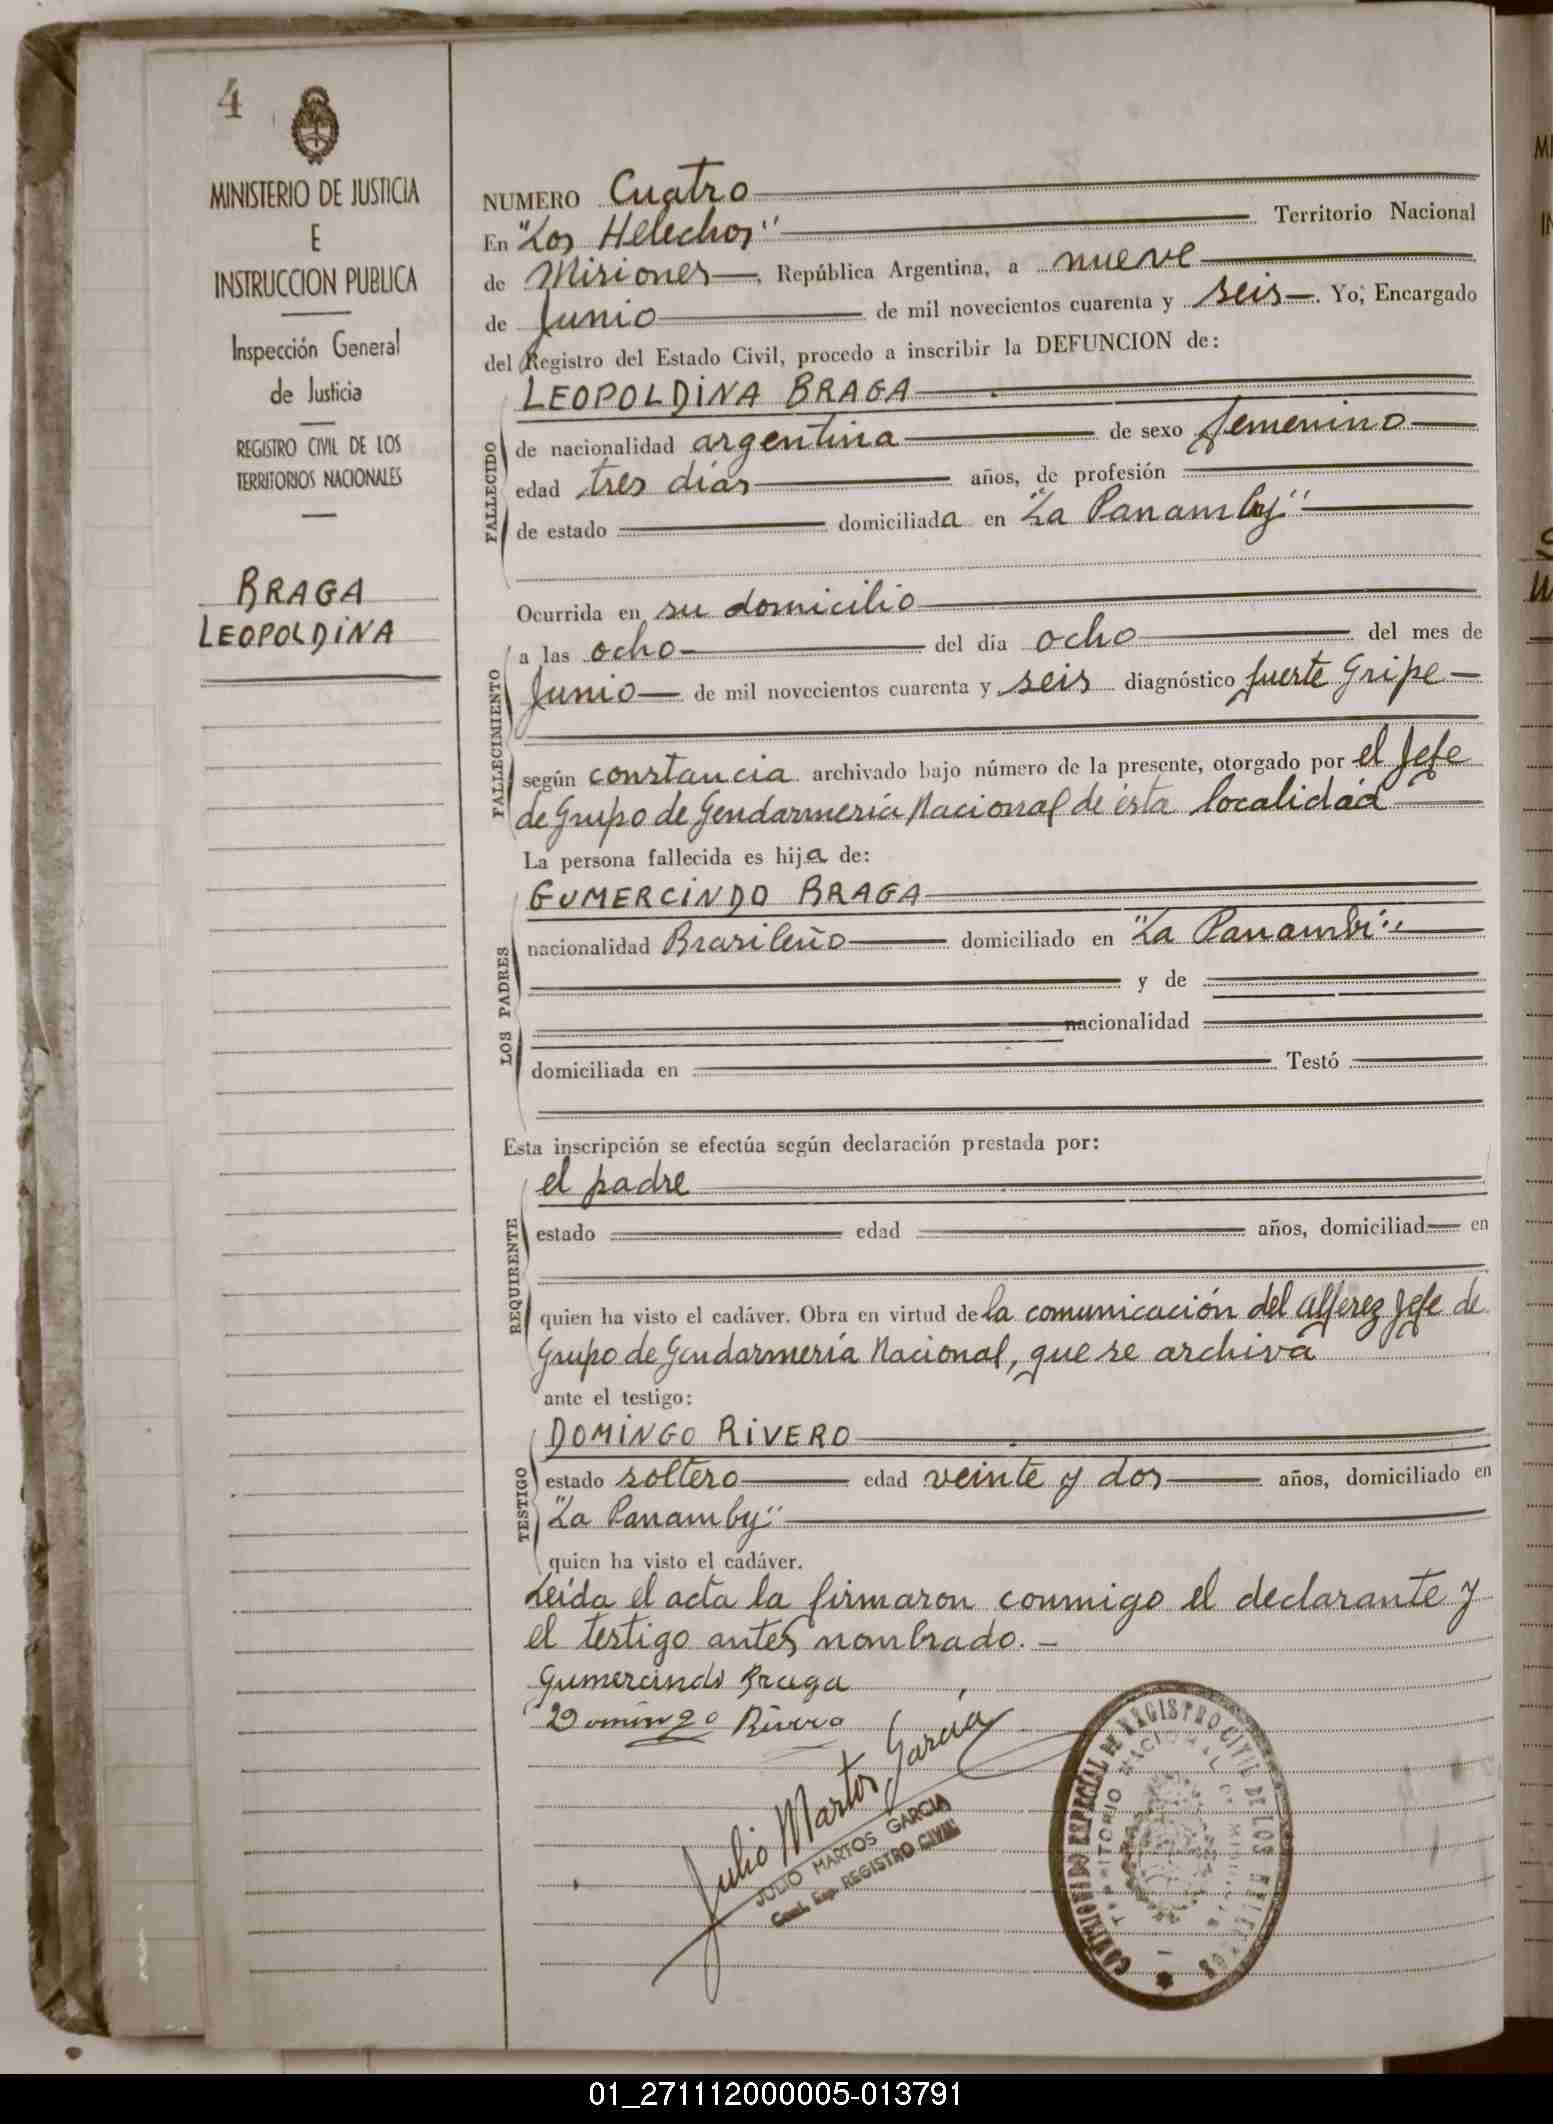 4
MINISTERIO DE JUSTICIA
E
INSTRUCCION PUBLICA
Inspección General
de Justicia
REGISTRO CIVIL DE LOS
TERRITORIOS NACIONALES
BRAGA
LEOPOLDINA
NUMERO Cuatro
En "Los Helechos" Territorio Nacional
de Misiones, República Argentina, a nueve
de Junio de mil novecientos cuarenta y seis. Yo, Encargado
del Registro del Estado Civil, procedo a inscribir la DEFUNCION de:
FALLECIDO
LEOPOLDINA BRAGA
de nacionalidad argentina de sexo femenino
edad tres días años, de profesión
de estado domiciliada en "La Panamby"
FALLECIMIENTO
Ocurrida en su domicilio
a las ocho del día ocho del mes de
Junio de mil novecientos cuarenta y seis diagnóstico fuerte Gripe
según constancia archivado bajo número de la presente, otorgado por el Jefe
de Grupo de Gendarmería Nacional de ésta localidad
La persona fallecida es hija de:
LOS PADRES
GUMERCINDO BRAGA
nacionalidad Brasileño domiciliado en "La Panambi"
y de
nacionalidad
domiciliada en Testó
Esta inscripción se efectúa según declaración prestada por:
REQUIRENTE
el padre
estado edad años, domiciliad en
quien ha visto el cadáver. Obra en virtud de la comunicación del alferez Jefe de
Grupo de Gendarmería Nacional, que se archiva
ante el testigo:
TESTIGO
DOMINGO RIVERO
estado soltero edad veinte y dos años, domiciliado en
"La Panamby"
quien ha visto el cadáver.
Leída el acta la firmaron conmigo el declarante y
el testigo antes nombrado. -
Gumercindo Braga
Domingo Rivero
Julio Martos García
JULIO MARTOS GARCIA
Com. Esp. REGISTRO CIVIL
COMISIONADO ESPECIAL DE REGISTRO CIVIL DE LOS HELECHOS
TERRITORIO NACIONAL DE MISIONES
01_271112000005-013791